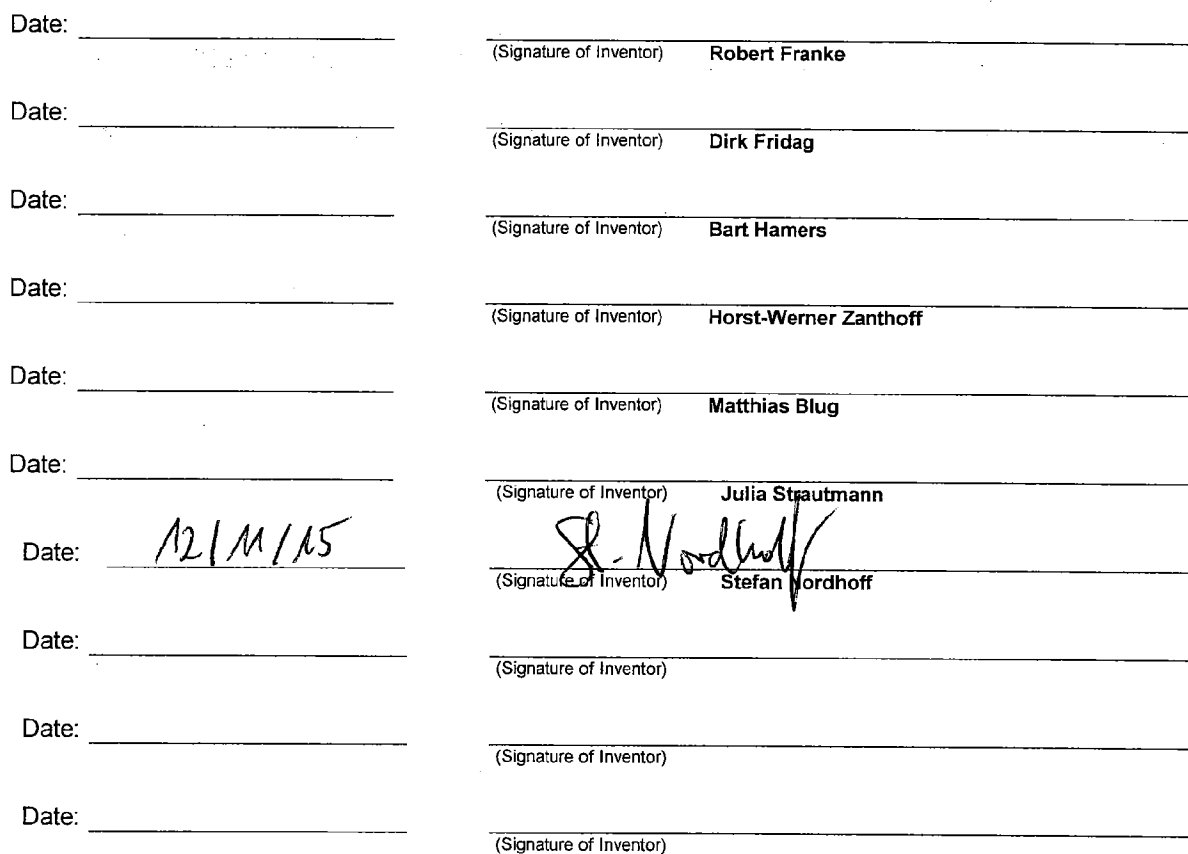 Date:
(Signature of Inventor) Robert Franke
Date:
(Signature of Inventor) Dirk Fridag
Date:
(Signature of Inventor) Bart Hamers
Date:
(Signature of Inventor) Horst-Werner Zanthoff
Date:
(Signature of Inventor) Matthias Blug
Date:
(Signature of Inventor) Julia Strautmann
Date: 12/11/15 St. Nordhoff
(Signature of Inventor) Stefan Nordhoff
Date:
(Signature of Inventor)
Date:
(Signature of Inventor)
Date:
(Signature of Inventor)